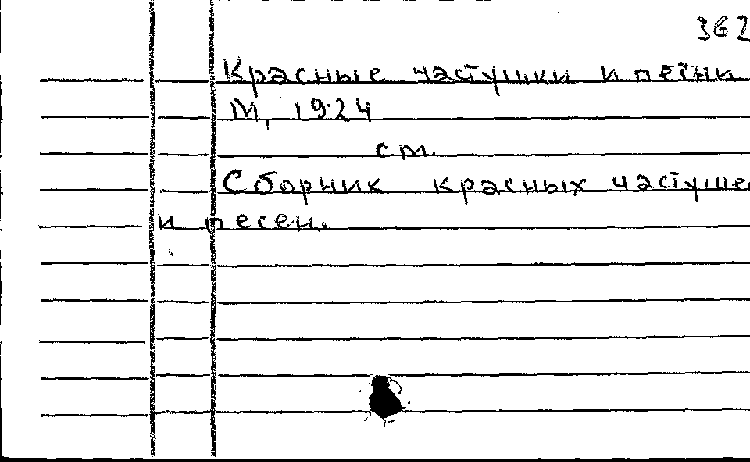 362
Красные частушки и песни
М, 1924
см.
Сборник красных частуше
и песен.